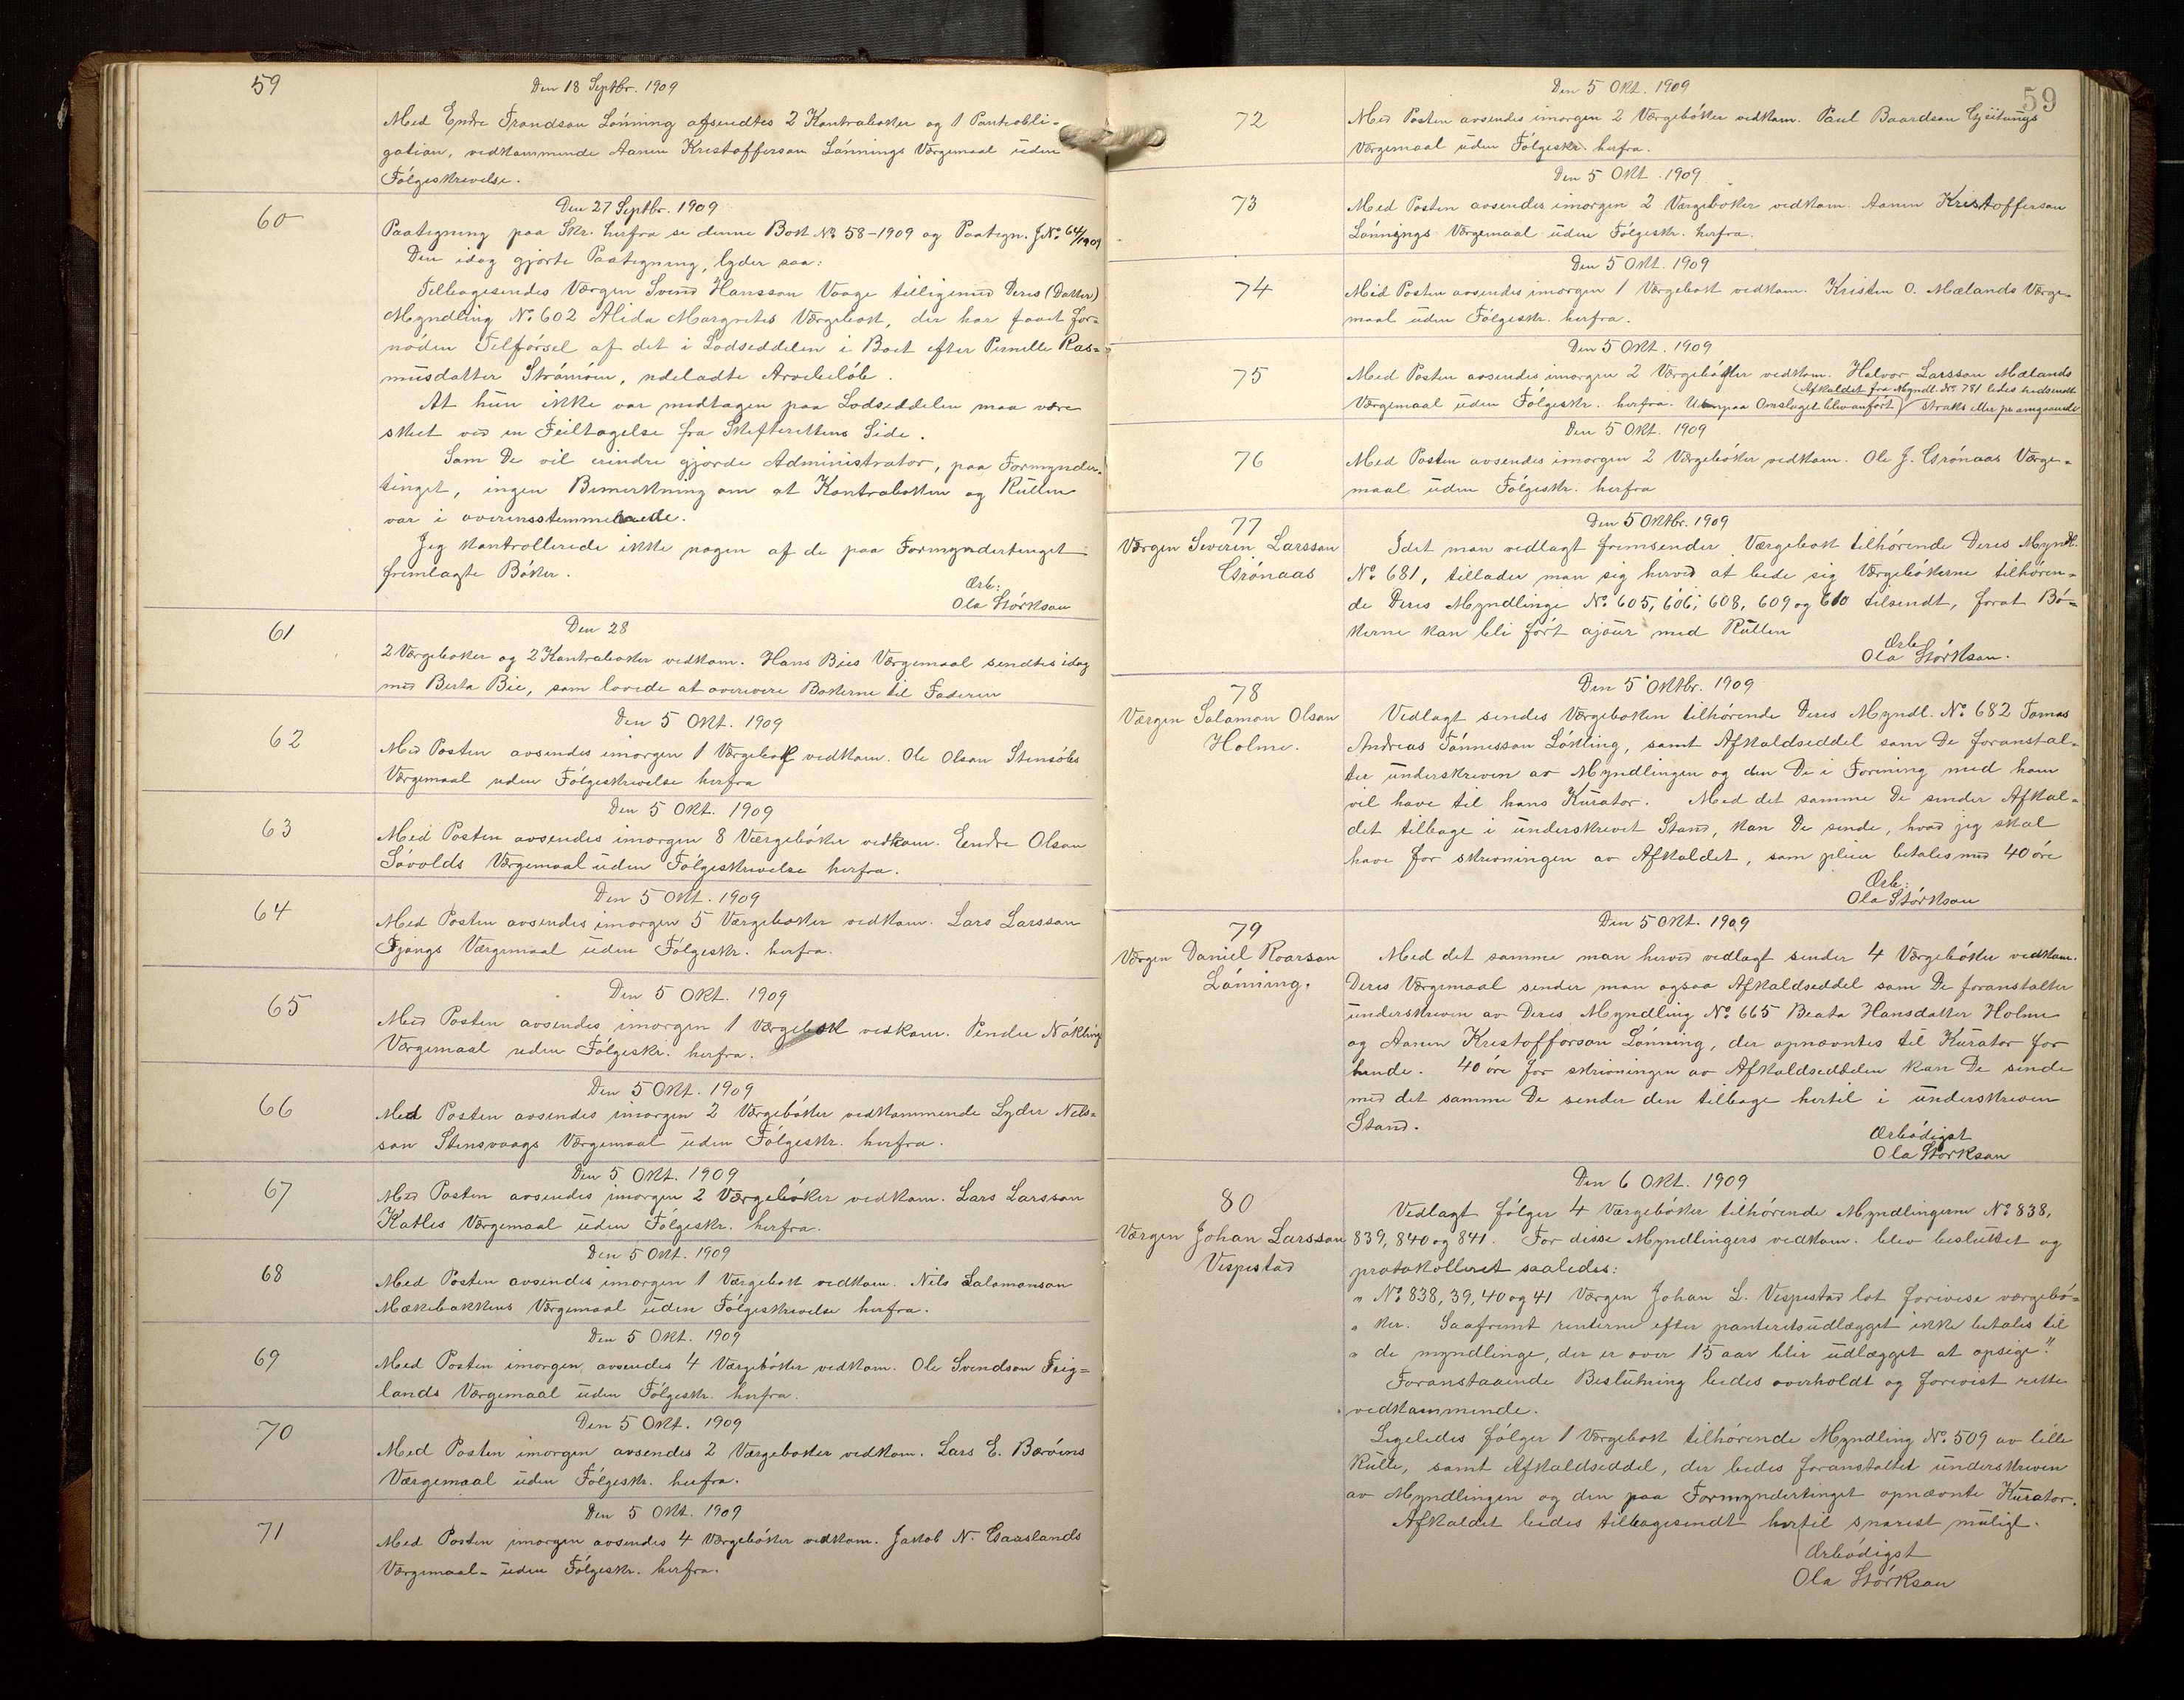 59
Den 18 Septbr. 1909
Med Endre Trondson Lönning afsendtes 2 Kontraboker og 1 Pantobli-
gation, vedkommende Aanen Kristofferson Lönnings Værgemaal uden
Fölgeskrivelse.
60
Den 27 Septbr. 1909
Paategning paa Skr. herfra se denne Bok No 58-1909 og Paategn. J.No 64/1909
Den idag gjorte Paategning, lyder saa:
Tilbagesendes Værgen Svend Hansson Vaage tilligemed Deres (Datter)
Myndling No 602 Alida Margretes Værgebok, der har faaet for-
nöden Tilförsel af det i Lodseddelen i Boet efter Pernille Ras-
musdatter Strömöen, udeladte Arvebelöb.
At hun ikke var medtagen paa Lodseddelen maa være
skeet ved en Feiltagelse fra Skifterettens Side.
Som De vil erindre gjorde Administrator, paa Formynder-
tinget, ingen Bemerkning om at Kontraboken og Rullen
var i overensstemmelse.
Jeg kontrollerede ikke nogen af de paa Formyndertinget
fremlagte Böker.
Ærb:
Ola Störkson
61
Den 28
2 Værgeboker og 2 Kontraboker vedkom. Hans Bies Værgemaal sendtes idag
med Berta Bie, som lovede at overlevere Bokerne til Faderen
62
Den 5 Okt. 1909
Med Posten avsendes imorgen 1 Værgebok vedkom. Ole Olson Stensöls
Værgemaal uden Fölgeskrivelse herfra
63
Den 5 Okt. 1909
Med Posten avsendes imorgen 8 Værgeböker vedkom. Endre Olson
Sövolds Værgemaal uden Fölgeskrivelse herfra.
64
Den 5 Okt. 1909
Med Posten avsendes imorgen 5 Værgeboker vedkom. Lars Larsson
Fjongs Værgemaal uden Fölgeskr. herfra.
65
Den 5 Okt. 1909
Med Posten avsendes imorgen 1 Værgebok vedkom. Peder Nökling
Værgemaal uden Fölgeskr. herfra.
66
Den 5 Okt. 1909
Med Posten avsendes imorgen 2 Værgeböker vedkommende Lyder Nels-
son Stensvaags Værgemaal uden Fölgeskr. herfra.
67
Den 5 Okt. 1909
Med Posten avsendes imorgen 2 Værgeböker vedkom. Lars Larsson
Katles Værgemaal uden Fölgeskr. herfra.
68
Den 5 Okt. 1909
Med Posten avsendes imorgen 1 Værgebok vedkom. Nils Salomonson
Mækebakkens Værgemaal uden Fölgeskrivelse herfra.
69
Den 5 Okt. 1909
Med Posten imorgen avsendes 4 Værgeböker vedkom. Ole Svendson Teig-
lands Værgemaal uden Fölgeskr. herfra.
70
Den 5 Okt. 1909
Med Posten imorgen avsendes 2 Værgeboker vedkom. Lars E. Böröens
Værgemaal uden Fölgeskr. herfra.
71
Den 5 Okt. 1909
Med Posten imorgen avsendes 4 Værgeböker vedkom. Jakob N. Gaaslands
Værgemaal- uden Fölgeskr. herfra.
59
72
Den 5 Okt. 1909
Med Posten avsendes imorgen 2 Værgeböker vedkom. Paul Baardson Gjeitungs
Værgemaal uden Fölgeskr. herfra.
73
Den 5 Okt. 1909
Med Posten avsendes imorgen 2 Værgeboker vedkom. Aanen Kristofferson
Lönnings Værgemaal uden Fölgeskr. herfra.
74
Den 5 Okt. 1909
Med Posten avsendes imorgen 1 Værgebok vedkom. Kristen O. Mælands Værge-
maal uden Fölgeskr. herfra.
75
Den 5 Okt. 1909
Med Posten avsendes imorgen 2 Værgeböker vedkom. Halvor Larsson Mælands
Værgemaal uden Fölgeskr. herfra. Utenpaa Omslaget blev anfört (Afkaldet fra Myndl. No 781 bedes nedsendt
straks eller pr omgaaende
76
Den 5 Okt. 1909
Med Posten avsendes imorgen 2 Værgeböker vedkom. Ole J. Grönaas Værge-
maal uden Fölgeskr. herfra
77
Værgen Severin Larsson
Grönaas
Den 5 Oktbr. 1909
Idet man vedlagt fremsender Værgebok tilhörende Deres Myndl.
No 681, tillader man sig herved at bede sig Værgebökerne tilhören-
de Deres Myndlinge No 605, 606, 608, 609 og 610 tilsendt, forat Bö-
kerne kan bli fört ajour med Rullen
Ærb
Ola Störkson.
78
Værgen Salamon Olson
Holme.
Den 5 Oktbr. 1909
Vedlagt sendes Værgeboken tilhörende Deres Myndl. No 682 Tomas
Andreas Tönnesson Lökling, samt Afkaldseddel som De foranstal-
ter underskreven av Myndlingen og den De i Forening med ham
vil have til hans Kurator. Med det samme De sender Afkal-
det tilbage i underskrevet Stand, kan De sende, hvad jeg skal
have for skrivningen av Afkaldet, som pleier betales med 40 öre
Ærb:
Ola Störkson
79
Værgen Daniel Roarson
Lönning.
Den 5 Okt. 1909
Med det samme man herved vedlagt sender 4 Værgeböker vedkom.
Deres Værgemaal sender man ogsaa Afkaldseddel som De foranstalter
underskreven av Deres Myndling No 665 Beata Hansdatter Holme
og Aanen Kristofferson Lönning, der opnævntes til Kurator for
hende. 40 öre for skrivningen av Afkaldseddelen kan De sende
med det samme De sender den tilbage hertil i underskreven
Stand.
Ærbödigst
Ola Störkson
80
Værgen Johan Larsson
Vespestad
Den 6 Okt. 1909
Vedlagt fölger 4 Værgeböker tilhörende Myndlingerne No 838,
839, 840 og 841. For disse Myndlingers vedkom. blev besluttet og
protokolleret saaledes:
" No 838, 39, 40 og 41 Værgen Johan L. Vespestad lot forevise værgebö-
" ker. Saafremt renterne efter panteretsudlægget ikke betales til
" de myndlinge, der er over 15 aar blir udlægget at opsige."
Foranstaaende Beslutning bedes overholdt og forevist rette
vedkommende.
Ligeledes fölger 1 Værgebok tilhörende Myndling No 509 av lille
Rulle, samt Afkaldseddel, der bedes foranstaltet underskreven
av Myndlingen og den paa Formyndertinget opnævnte Kurator.
Afkaldet bedes tilbagesendt hertil snarest muligt.
Ærbödigst
Ola Störkson